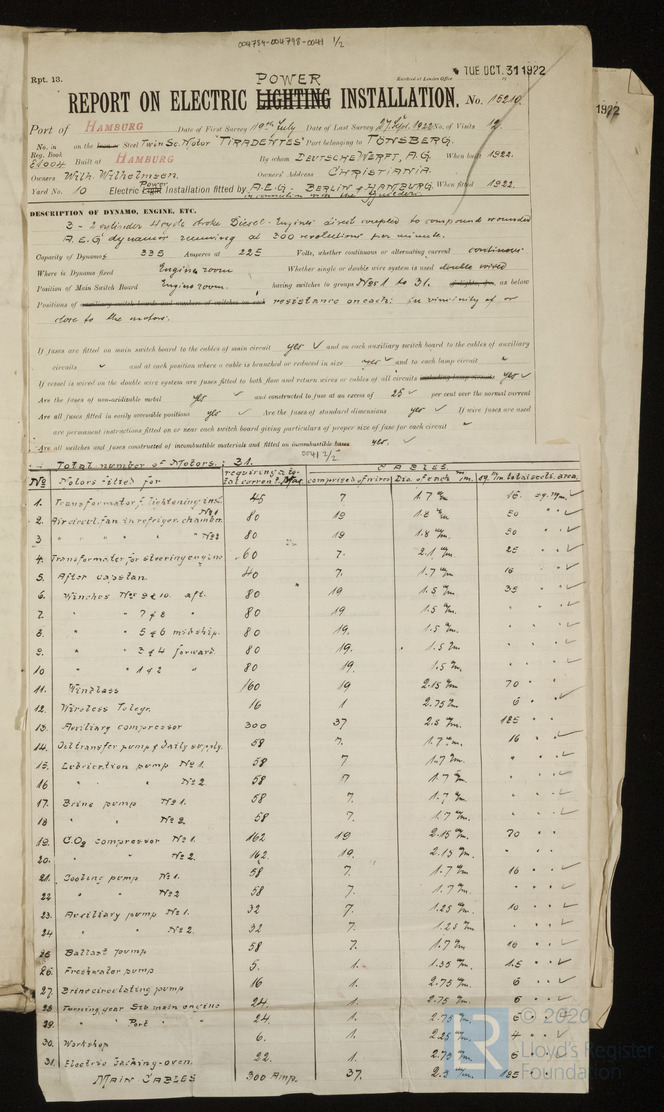 004784-004798-0041 1/2
Rpt. 13.
Received at London Office
TUE OCT. 31 1922
POWER
REPORT ON ELECTRIC LIGHTING INSTALLATION. No. 15210.
1922
Port of HAMBURG Date of First Survey 19th July Date of Last Survey 27 Sept. 1922 No. of Visits 12
No. in on the Iron or Steel Twin Sc. Motor "TIRADENTES" Port belonging to TÖNSBERG.
Reg. Book
Built at HAMBURG By whom DEUTSCHE WERFT, A.G. When built 1922.
Owners Wilh. Wilhelmsen. Owners' Address CHRISTIANIA
Yard No. 10 Electric Light Power Installation fitted by A.E.G. - BERLIN & HAMBURG When fitted 1922.
in connection with the Builders
DESCRIPTION OF DYNAMO, ENGINE, ETC.
3 - 2 cylinder 4 cycle stroke Diesel-Engines direct coupled to compound wounded
A.E.G dynamos running at 300 revolutions per minute.
Capacity of Dynamos 335 Amperes at 225 Volts, whether continuous or alternating current continuous
Where is Dynamo fixed Engine room Whether single or double wire system is used double wired
Position of Main Switch Board Engine room. having switches to groups Nos 1 to 31. of lights, &c. as below
Positions of auxiliary switch boards and numbers of switches on each resistance on each: in vicinity of or
close to the motors.
If fuses are fitted on main switch board to the cables of main circuit yes ✓ and on each auxiliary switch board to the cables of auxiliary
circuits ✓ and at each position where a cable is branched or reduced in size yes ✓ and to each lamp circuit ✓
If vessel is wired on the double wire system are fuses fitted to both flow and return wires or cables of all circuits including lamp circuits yes ✓
Are the fuses of non-oxidizable metal yes ✓ and constructed to fuse at an excess of 25 ✓ per cent over the normal current
Are all fuses fitted in easily accessible positions yes ✓ Are the fuses of standard dimensions yes ✓ If wire fuses are used
are permanent instructions fitted on or near each switch board giving particulars of proper size of fuse for each circuit ✓
Are all switches and fuses constructed of incombustible materials and fitted on incombustible bases yes. ✓
0041 2/2
Total number of Motors: 31.
CABLES
No Motors fitted for requiring a total current, Max. comprised of wires Dia. of each m/m. sq. m/m total sect. area.
1. Transformator f. lightening inst. 45 7 1.7 m/m 16. sq. m/m. ✓
2. Air circul. fan in refriger. chamber No1 80 19 1.8 m/m 50 " " ✓
3 " " " " " No2 80 19 1.8 m/m. 50 " " ✓
4. Transformator for steering engine 60 7. 2.1 m/m 25 " " ✓
5. After capstan 40 7. 1.7 m/m. 16 " " ✓
6. Winches Nos 9 & 10 aft. 80 19 1.5 m/m. 35 " " ✓
7. " " 7 & 8 " 80 19 1.5 m/m. " " " ✓
8. " " 5 & 6 midship. 80 19. 1.5 m/m. " " " ✓
9. " " 3 & 4 forward 80 19. 1.5 m/m. " " " ✓
10 " " 1 & 2 " 80 19. 1.5 m/m. " " " ✓
11. Windlass 160 19 2.15 m/m 70 " "
12. Wireless Telegr. 16 1 2.75 m/m 6 " " ✓
13. Auxiliary compressor 300 37 2.5 m/m. 185 " "
14. Oil transfer pump & daily supply. 58 7. 1.7 m/m. 16 " " ✓
15. Lubrication pump No 1. 58 7 1.7 m/m. " " " ✓
16 " " No 2 58 7 1.7 m/m. " " " ✓
17. Brine pump No 1. 58 7. 1.7 m/m. " " " ✓
18 " " No 2. 58 7. 1.7 m/m. " " " ✓
19. CO2 compressor No 1. 162 19 2.15 m/m. 70 " "
20. " " No 2. 162 19. 2.15 m/m. " " " ✓
21. Cooling pump No 1. 58 7. 1.7 m/m. 16 " " ✓
22 " " No 2 58 7. 1.7 m/m. " " " ✓
23. Auxiliary pump No 1. 32 7. 1.25 m/m. 10 " " ✓
24 " " No 2. 32 7. 1.25 m/m " " " ✓
25 Ballast pump 58 7. 1.7 m/m 16 " " ✓
26. Freshwater pump 5. 1. 1.35 m/m. 1.5 " " ✓
27. Brine circulating pump 16 1 2.75 m/m. 6 " " ✓
28 Turning gear Stb main engine 24. 1. 2.75 m/m. 6 " " ✓
29. " " Port " " 24. 1. 2.75 m/m. 6 " " ✓
30. Workshop 6. 1. 2.25 m/m. 4 " " ✓
31. Electric baking-oven. 22. 1. 2.75 m/m. 6 " " ✓
MAIN CABLES 300 Amp. 37. 2.5 m/m. 185 " " ✓
LR © 2020
Lloyd's Register
Foundation